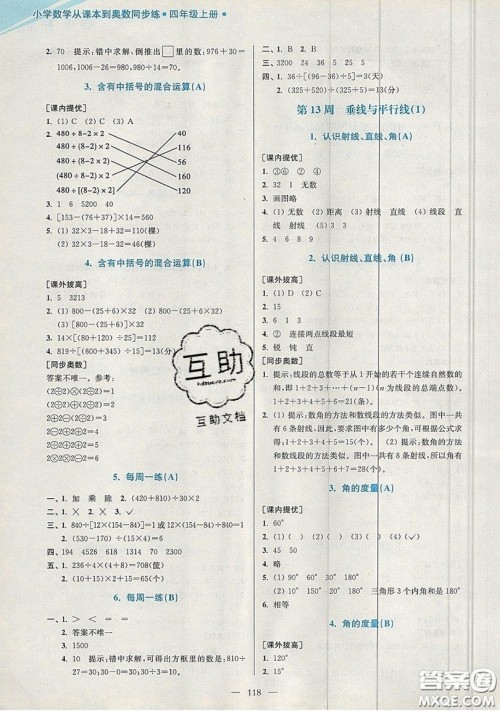 小学数学从课本到奥数同步练·四年级上册·
2. 70 提示：错中求解，倒推出□里的数：976+30=
1006，1006-26=980，980÷14=70
3. 含有中括号的混合运算(A)
[课内提优]
1. (1) C (2) C (3) A
2. 480÷8-2×2 40
480÷(8-2)×2 116
(480÷8-2)×2 56
480÷(8-2×2) 160
480÷[(8-2)×2] 120
3. 4
4. [153-(76+37)]×14=560
5. (1) 32×3-18-32=46(棵)
(2) 32×3-18+32=110(棵)
4. 含有中括号的混合运算(B)
[课外拔高]
1. 5 3213
2. (1) 800-(25+6)×32
(2) 800-(25×6)+32
(3) [800-(25+6)]×32
3. 14×[80÷(20÷5)]=112
4. 819÷[(80+140)÷20]=13(分)
[同步奥数]
答案不唯一．参考：
5. 每周一练(A)
一、1. 加 乘 除 2. (420+810)÷30×2
二、1. × 2. × 3. √
三、1. 840÷[12×(154-84)]=1或12×(154-84)÷840=1
2. (530-530)÷(15×4)=6
四、194 4526 138 4 15 3150
五、1. 236÷4×(4+8)=708(筐)
2. (10+15)×2=65(本)
6. 每周一练(B)
一、1. > < = =
2. 答案不唯一
3. 1500
4. 10 提示：错中求解，可得出方框里的数是：810÷
27=30；30-0=30；30÷3=10
二、1. × 2. × 3. √
三、3200 24 36 5 25 5
四、1. 36÷[96-(36+5)]=3(天)
2. (325+520)÷(325÷5)=13(分)
第13周 垂线与平行线(1)
1. 认识射线、直线、角(A)
[课内提优]
1. ③⑥ ② ④
2. 32 1 无数
3. 画图略
4. (1) 无数 (2) 距离 (3) 射线 直线 (4) 线段
直线 射线 (5) 3
5. 4 6 8 9
2. 认识射线、直线、角(B)
[课外拔高]
1. (1) D (2) C
2. 15
3. 9
4. ② 连接两点线段最短
5. 锐 钝 直
[同步奥数]
1. 提示：线段的总数等于从1开始的若干个连续自然数的
和，即1+2+3+…+(n-1)(n为直线的总端点数)．
1+2+3+4+5+6=21(条)
2. (1) 提示：数角的方法和数线段的方法类似。图中一共
有6条射线，因此图中有多少个角，可根据公式求
得：1+2+3+4+5=15(个)
(2) 提示：方法和数线段类似。图中共有8条射线，所以
1+2+3+4+5+6+7=28(个)
3. 角的度量(A)
[课内提优]
1. 60°
3. 45 50
4. 略
5. (1) 90° 60° 30° 180°
(2) 90° 45° 45° 180° 三角形3个内角和是180°
6. 相等
4. 角的度量(B)
[课外拔高]
1. 120°
2. 15°
互助
互助文档
118
答案圈
MXQE.COM